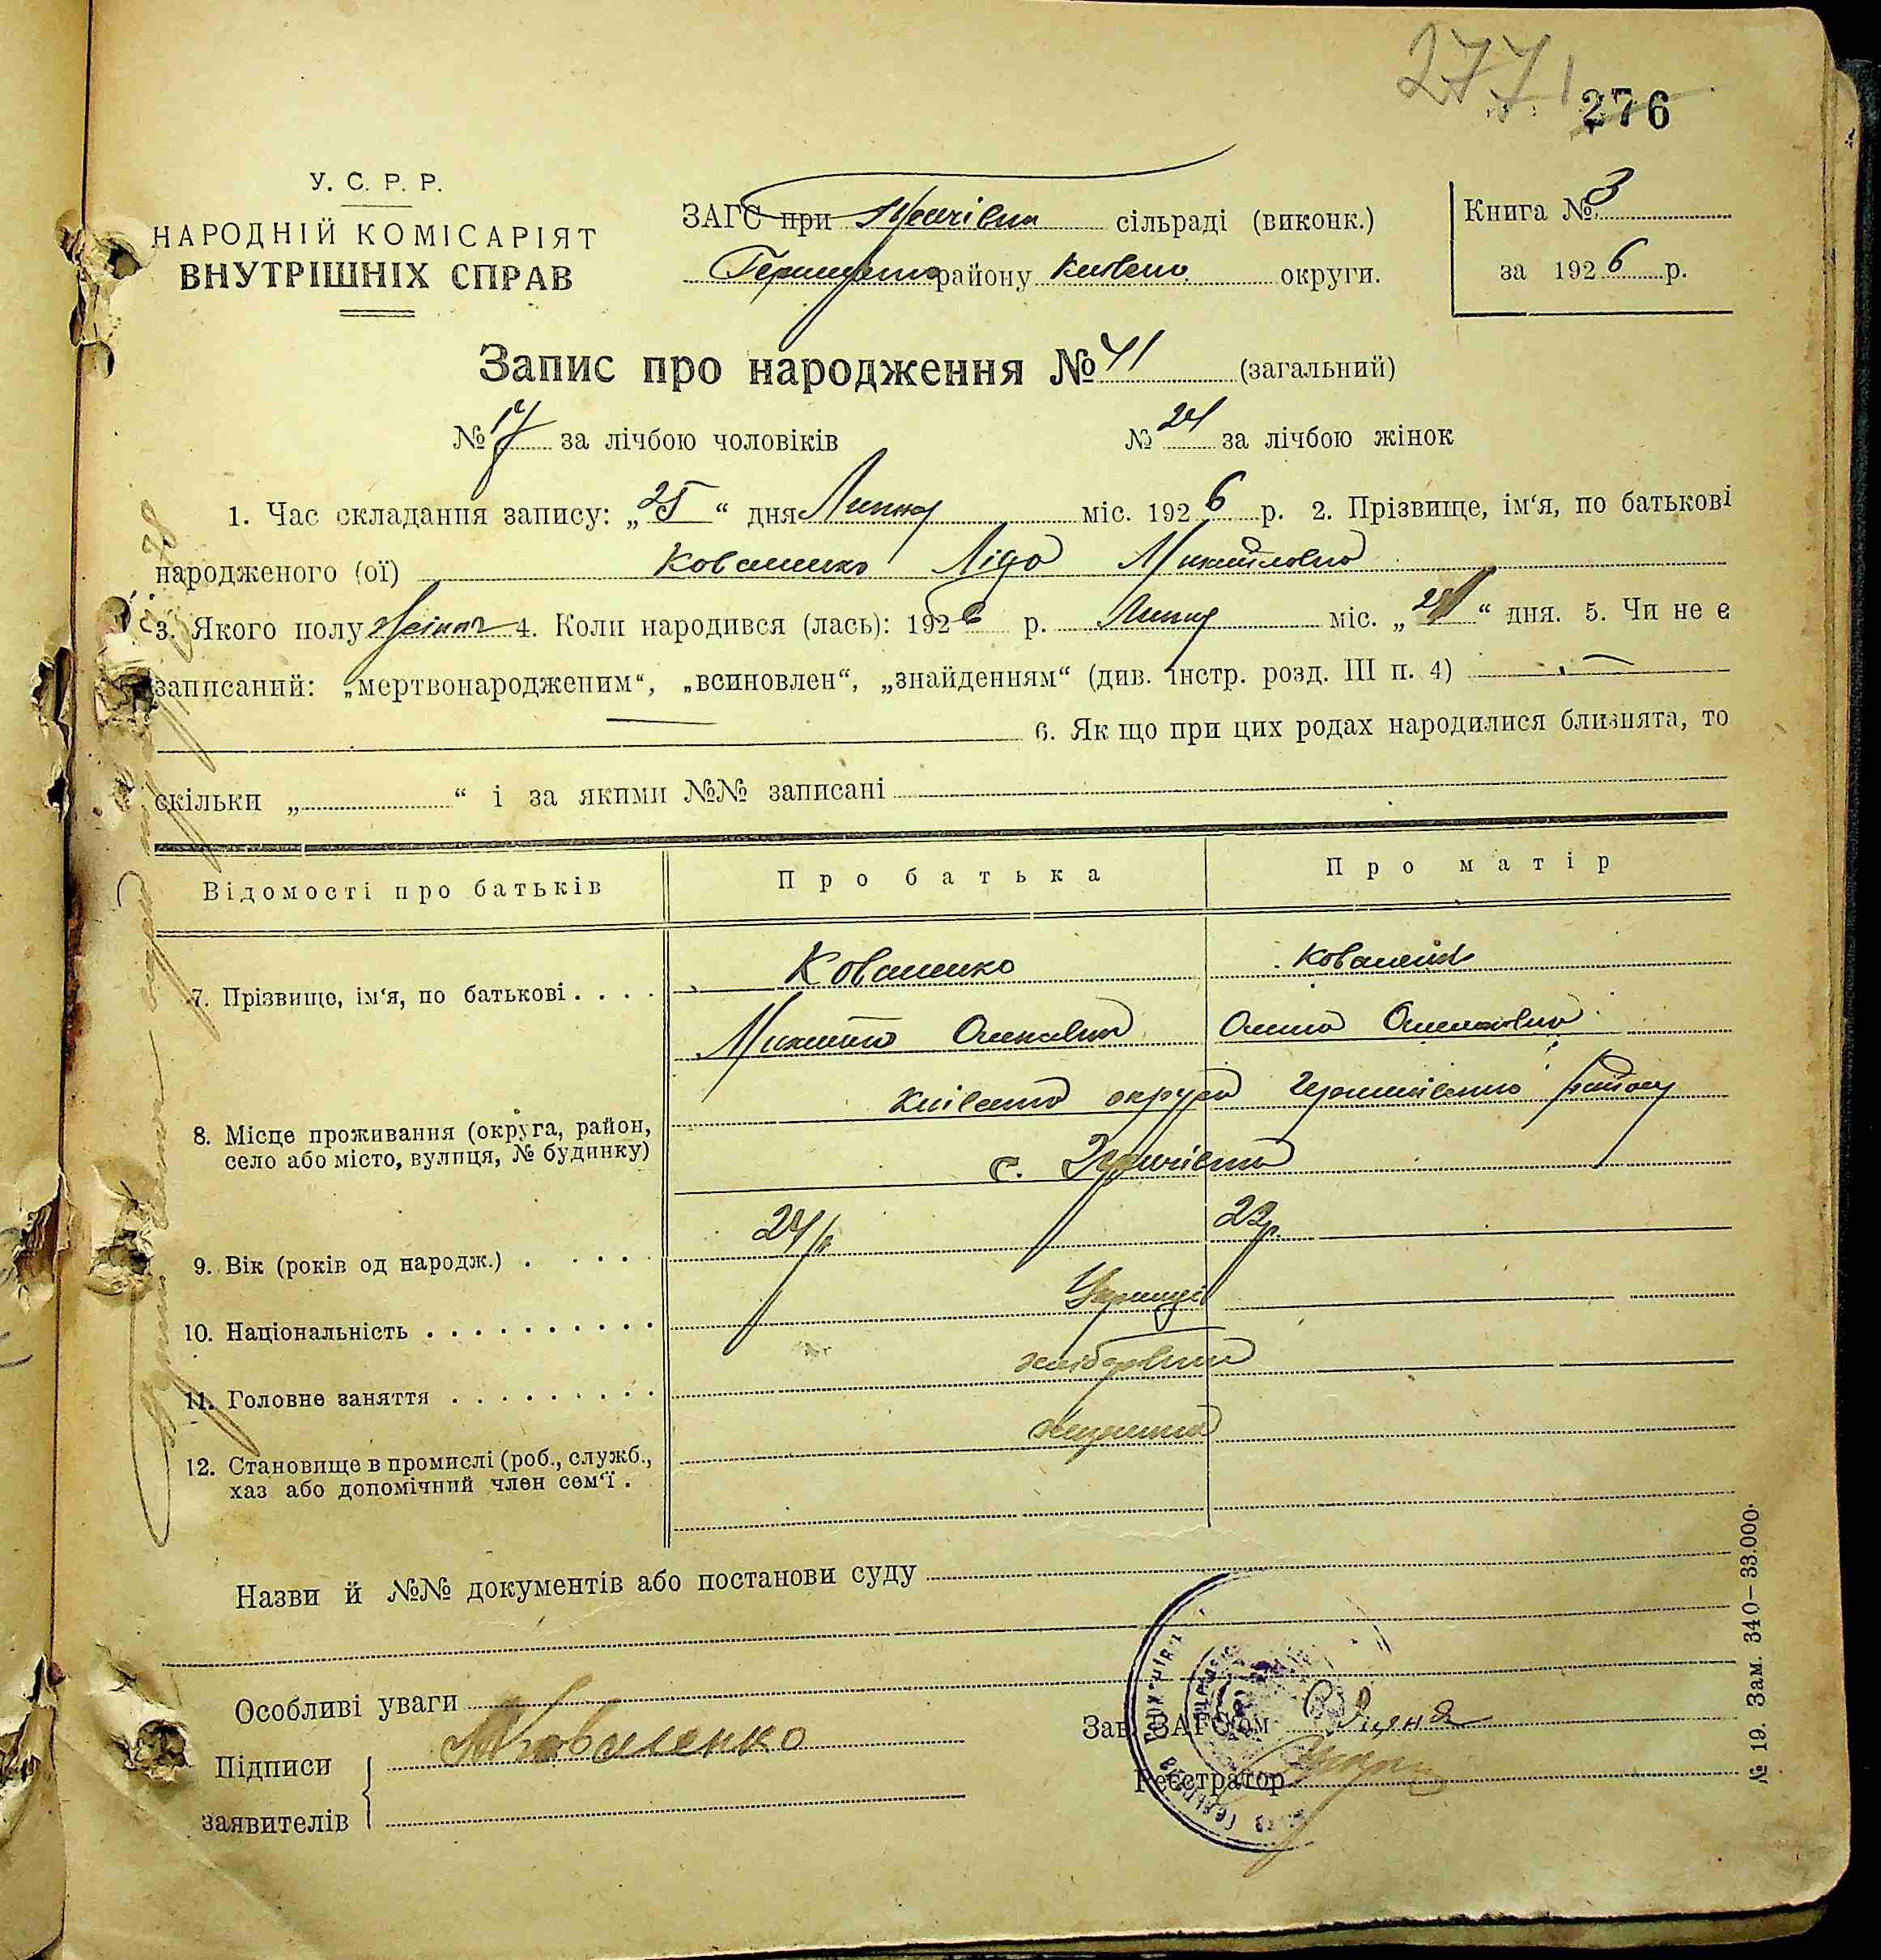 277
276
У. С. Р. Р.
НАРОДНІЙ КОМІСАРІЯТ
ВНУТРІШНІХ СПРАВ
ЗАГС при сільраді (виконк.)
району округи.
Книга № 3
за 1926 р.
Запис про народження № 41 (загальний)
№ 17 за лічбою чоловіків № 24 за лічбою жінок
1. Час складання запису: „25“ дня Липня міс. 1926 р. 2. Прізвище, ім‘я, по батькові
народженого (ої) Коваленко Ліда Михайловна
3. Якого полу Жіноч 4. Коли народився (лась): 1926 р. Липня міс. „“ дня. 5. Чи не є
записаний: „мертвонародженим“, „всиновлен“, „знайденням“ (див. інстр. розд. III п. 4)
6. Як що при цих родах народилися близнята, то
скільки „ “ і за якими №№ записані
Відомості про батьків Про батька Про матір
Коваленко Коваленко
7. Прізвище, ім‘я, по батькові
Михайло
Київська округа району
8. Місце проживання (округа, район,
село або місто, вулиця, № будинку)
с.
24 р. 22 р.
9. Вік (років од народж.)
Українці
10. Національність
хлібороби
11. Головне заняття
12. Становище в промислі (роб., служб.,
хаз або допомічний член сем‘ї.
Назви й №№ документів або постанови суду
Особливі уваги
Підписи заявителів
М Коваленко
Зав. ЗАГС‘ом
Реєстратор
№ 19. Зам. 340—33.000.